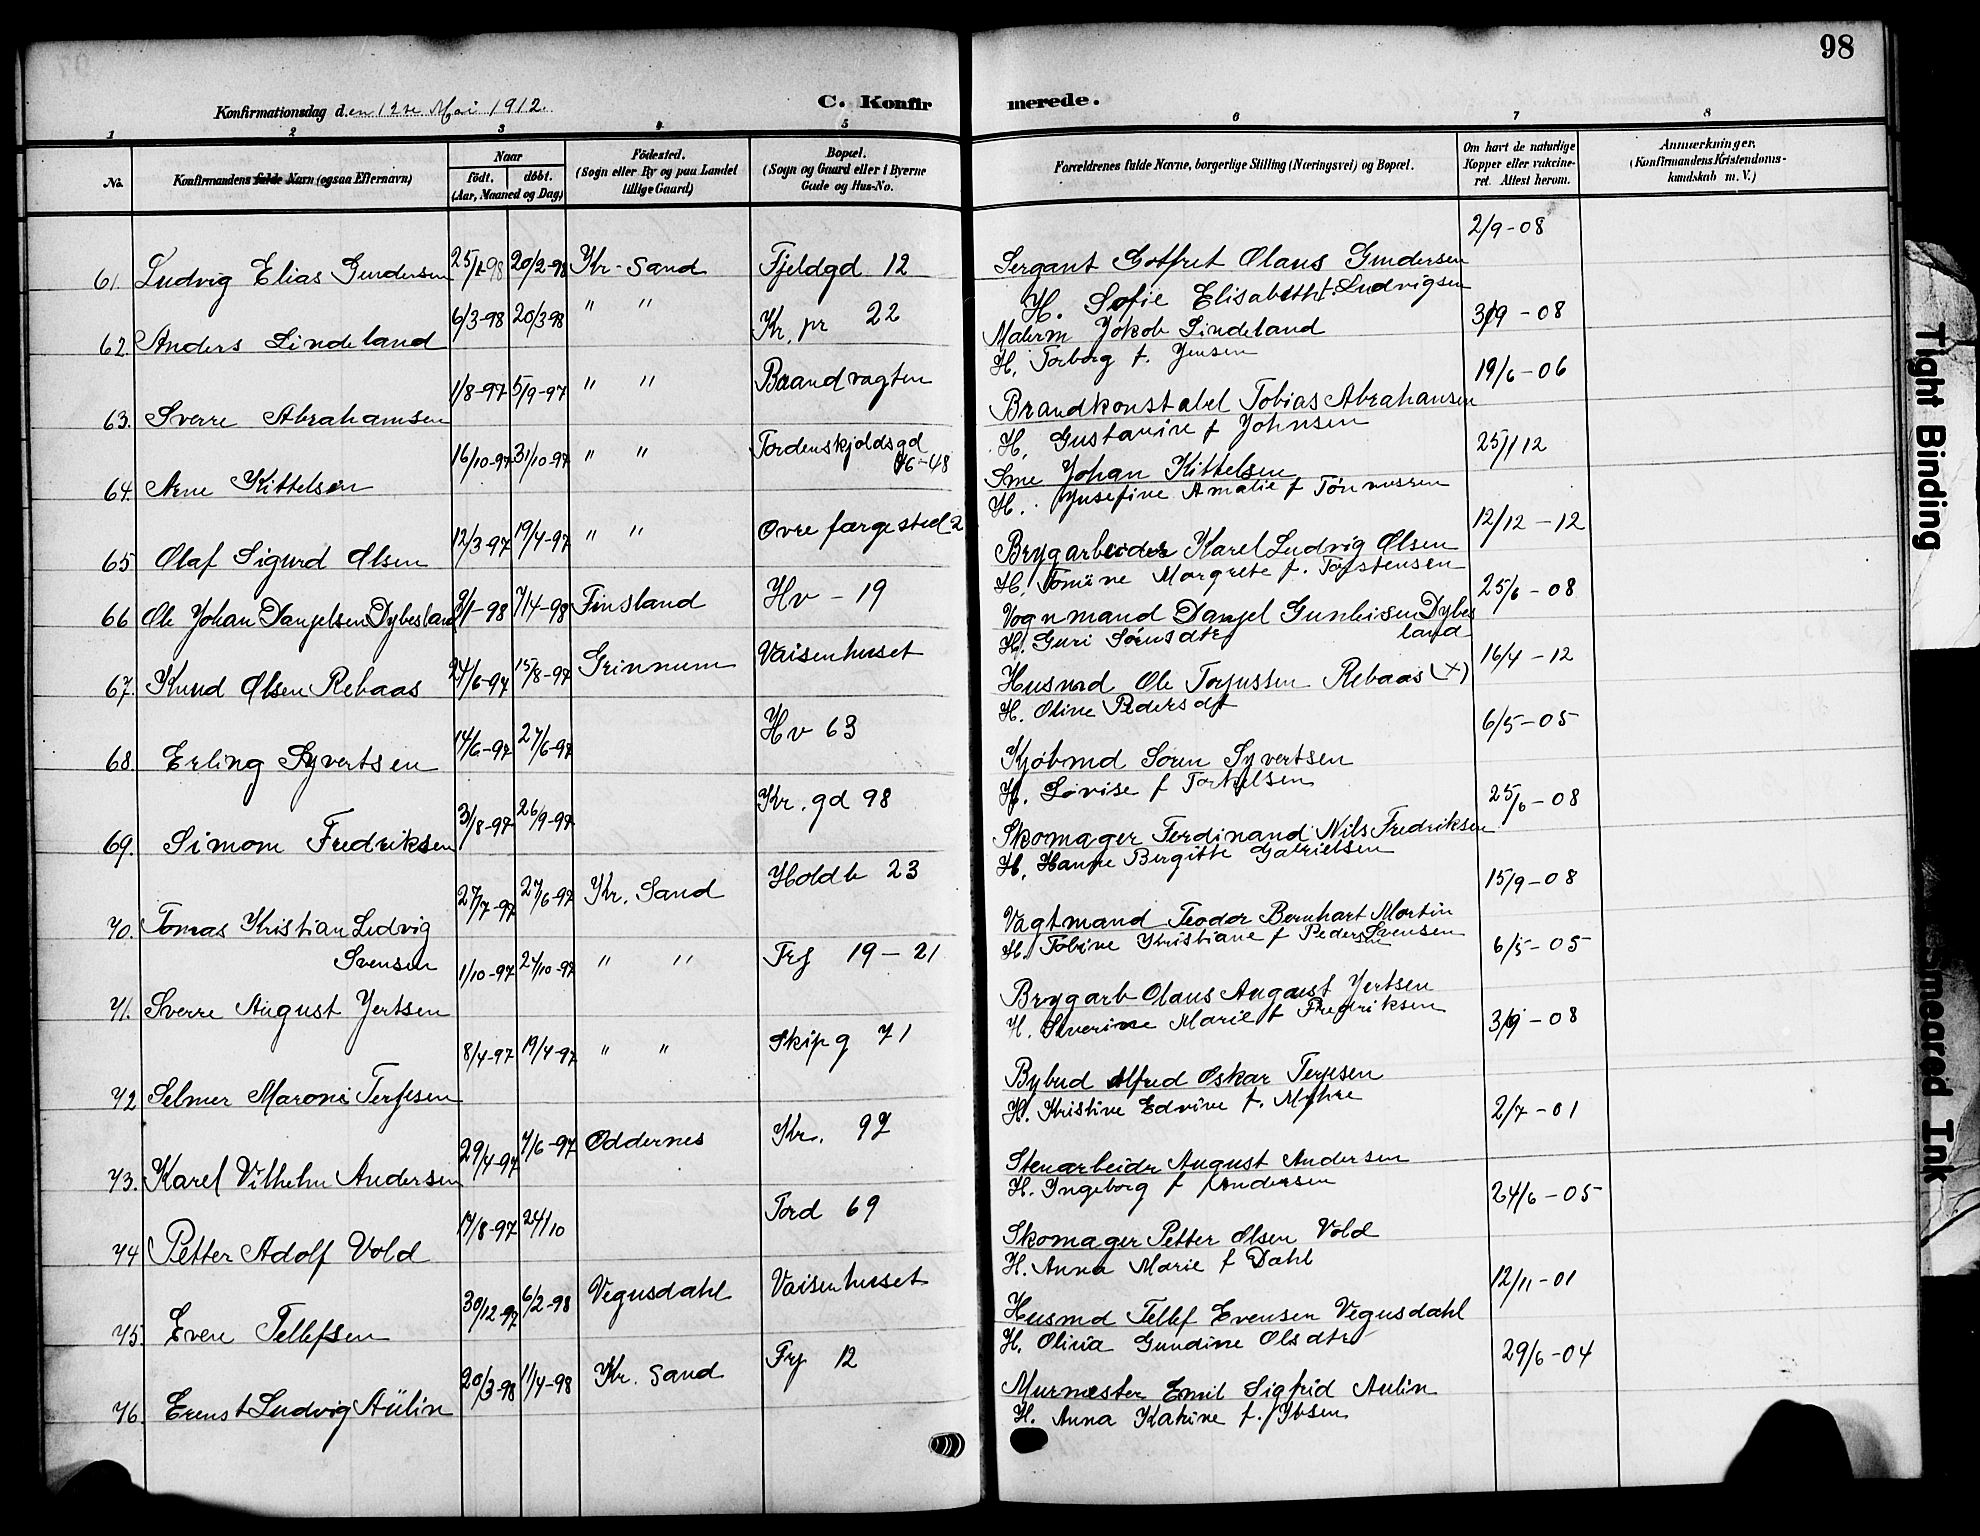 98
Konfirmationsdag den 12te Mai 1912.
C. Konfirmerede.
1 2 3 4 5 6 7 8
No. Konfirmandens fulde Navn (ogsaa Efternavn) Naar Födt. döbt. (Aar, Maaned og Dag) Födested. (Sogn eller By og paa Landet tillige Gaard) Bopæl. (Sogn og Gaard eller i Byerne Gade og Hus-No. Forældrenes fulde Navne, borgerlige Stilling (Næringsvei) og Bopæl. Om havt de naturlige Kopper eller vakcineret. Attest herom. Anmærkninger. (Konfirmandens Kristendomskundskab m. V.)
61. Ludvig Elias Gundersen 25/1-98 20/2-98 Kr-Sand Fjeldgd 12 Sergant Gotfret Olaus Gundersen 2/9-08
H. Sofie Elisabeth f. Ludvigsen
62. Anders Lindeland 6/3-98 20/3-98 " " Kr. pr 22 Malerm Jokob Lindeland 3/9-08
H. Torborg f. Jensen
63. Sverre Abrahamsen 1/8-97 5/9-97 " " Brandvagten Brandkonstabel Tobias Abrahansen 19/6-06
H. Gustavine f Johnsen
64. Arne Kittelsen 16/10-97 31/10-97 " " Tordenskjoldsgd 46-48 Sme Johan Kittelsen 25/1 12
H. Jusefine Amalie f Tönnessen
65 Olaf Sigurd Olsen 12/3-97 19/4-97 " " Ovre færgested 2 Brygarbeider Karel Ludvig Olsen 12/12-12
H. Tomine Margrete f. Torstensen
66 Ole Johan Danjelsen Dybesland 9/1-98 7/4-98 Finsland Hv-19 Vognmand Danjel Gunleisen Dybes 25/6-08
H. Guri Sörensdtr land
67. Knud Olsen Rebaas 24/6-97 15/8-97 Grinnum Vaisenhuset Husmd Ole Torjussen Rebaas (x) 16/4-12
H. Oline Pedersdt
68. Erling Syvertsen 14/6-97 27/6-97 Hv 63 Kjöbmd Sören Syvertsen 6/5-05
H. Lovise f Torkelsen
69. Simom Fredriksen 3/8-97 26/9-97 Kr. gd 98 Skomager Ferdinand Nils Fredriksen 25/6-08
H. Hanne Bergitte Gabrielsen
70. Tomas Kristian Ludvig 27/7-97 27/6-97 Kr. Sand Holdb 23 Vagtmand Teodor Bernhart Mortin 15/9-08
Svensen H. Tobine Kristiane f Pedersen Svensen
71. Sverre August Jertsen 1/10-97 24/10-97 " " Frj 19-21 Brygarb Olaus August Jertsen 6/5-05
H. Severine Marie f Fredriksen
72 Selmer Maroni Terjesen 8/4-97 19/4-97 " " Skipg 71 Bybud Alfred Oskar Terjesen 3/9-08
H. Kristine Edvine f. Myhre
73. Karel Vilhelm Andersen 29/4-97 7/6-97 Oddernes Kr. 97 Stenarbeider August Andersen 2/7-01
H. Ingeborg f Andersen
74 Petter Adolf Vold 17/8-97 24/10 Tord 69 Skomager Petter Olsen Vold 24/6-05
H. Anna Marie f Dahl
75. Even Tellefsen 30/12-97 6/2-98 Vegusdahl Vaisenhuset Husmd Tellef Evensen Vegusdahl 12/11-01
H. Olivia Gundine Olsdtr
76. Erenst Ludvig Aülin 20/3-98 11/4-98 Kr. Sand Frj 12 Murmester Emil Sigfrid Aulin 29/6-04
H. Anna Katrine f. Ibsen
Tight Binding
Smeared Ink